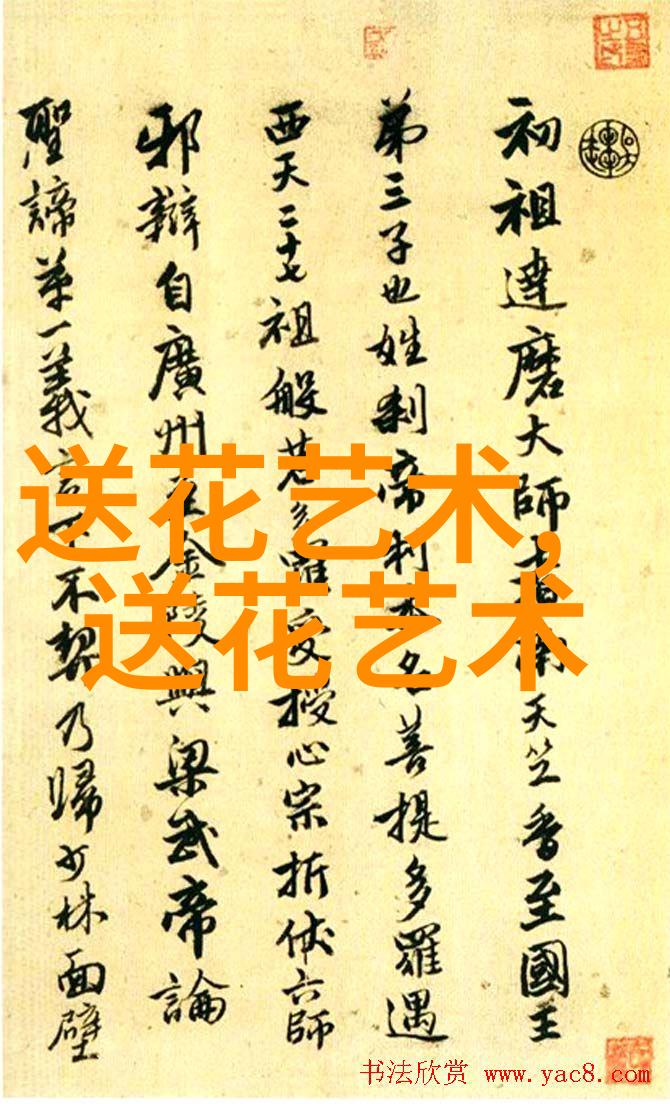 初祖達磨大師者南天竺香至國王
第三子也姓刹帝利本名菩提多羅遇
西天二十七祖般若多羅受授心宗折伏六師
邪辯自廣州至金陵與梁武帝論
聖諦第一義言下不契乃歸少林面壁
送花艺术,
送花艺术
书法欣赏 www.yac8.com